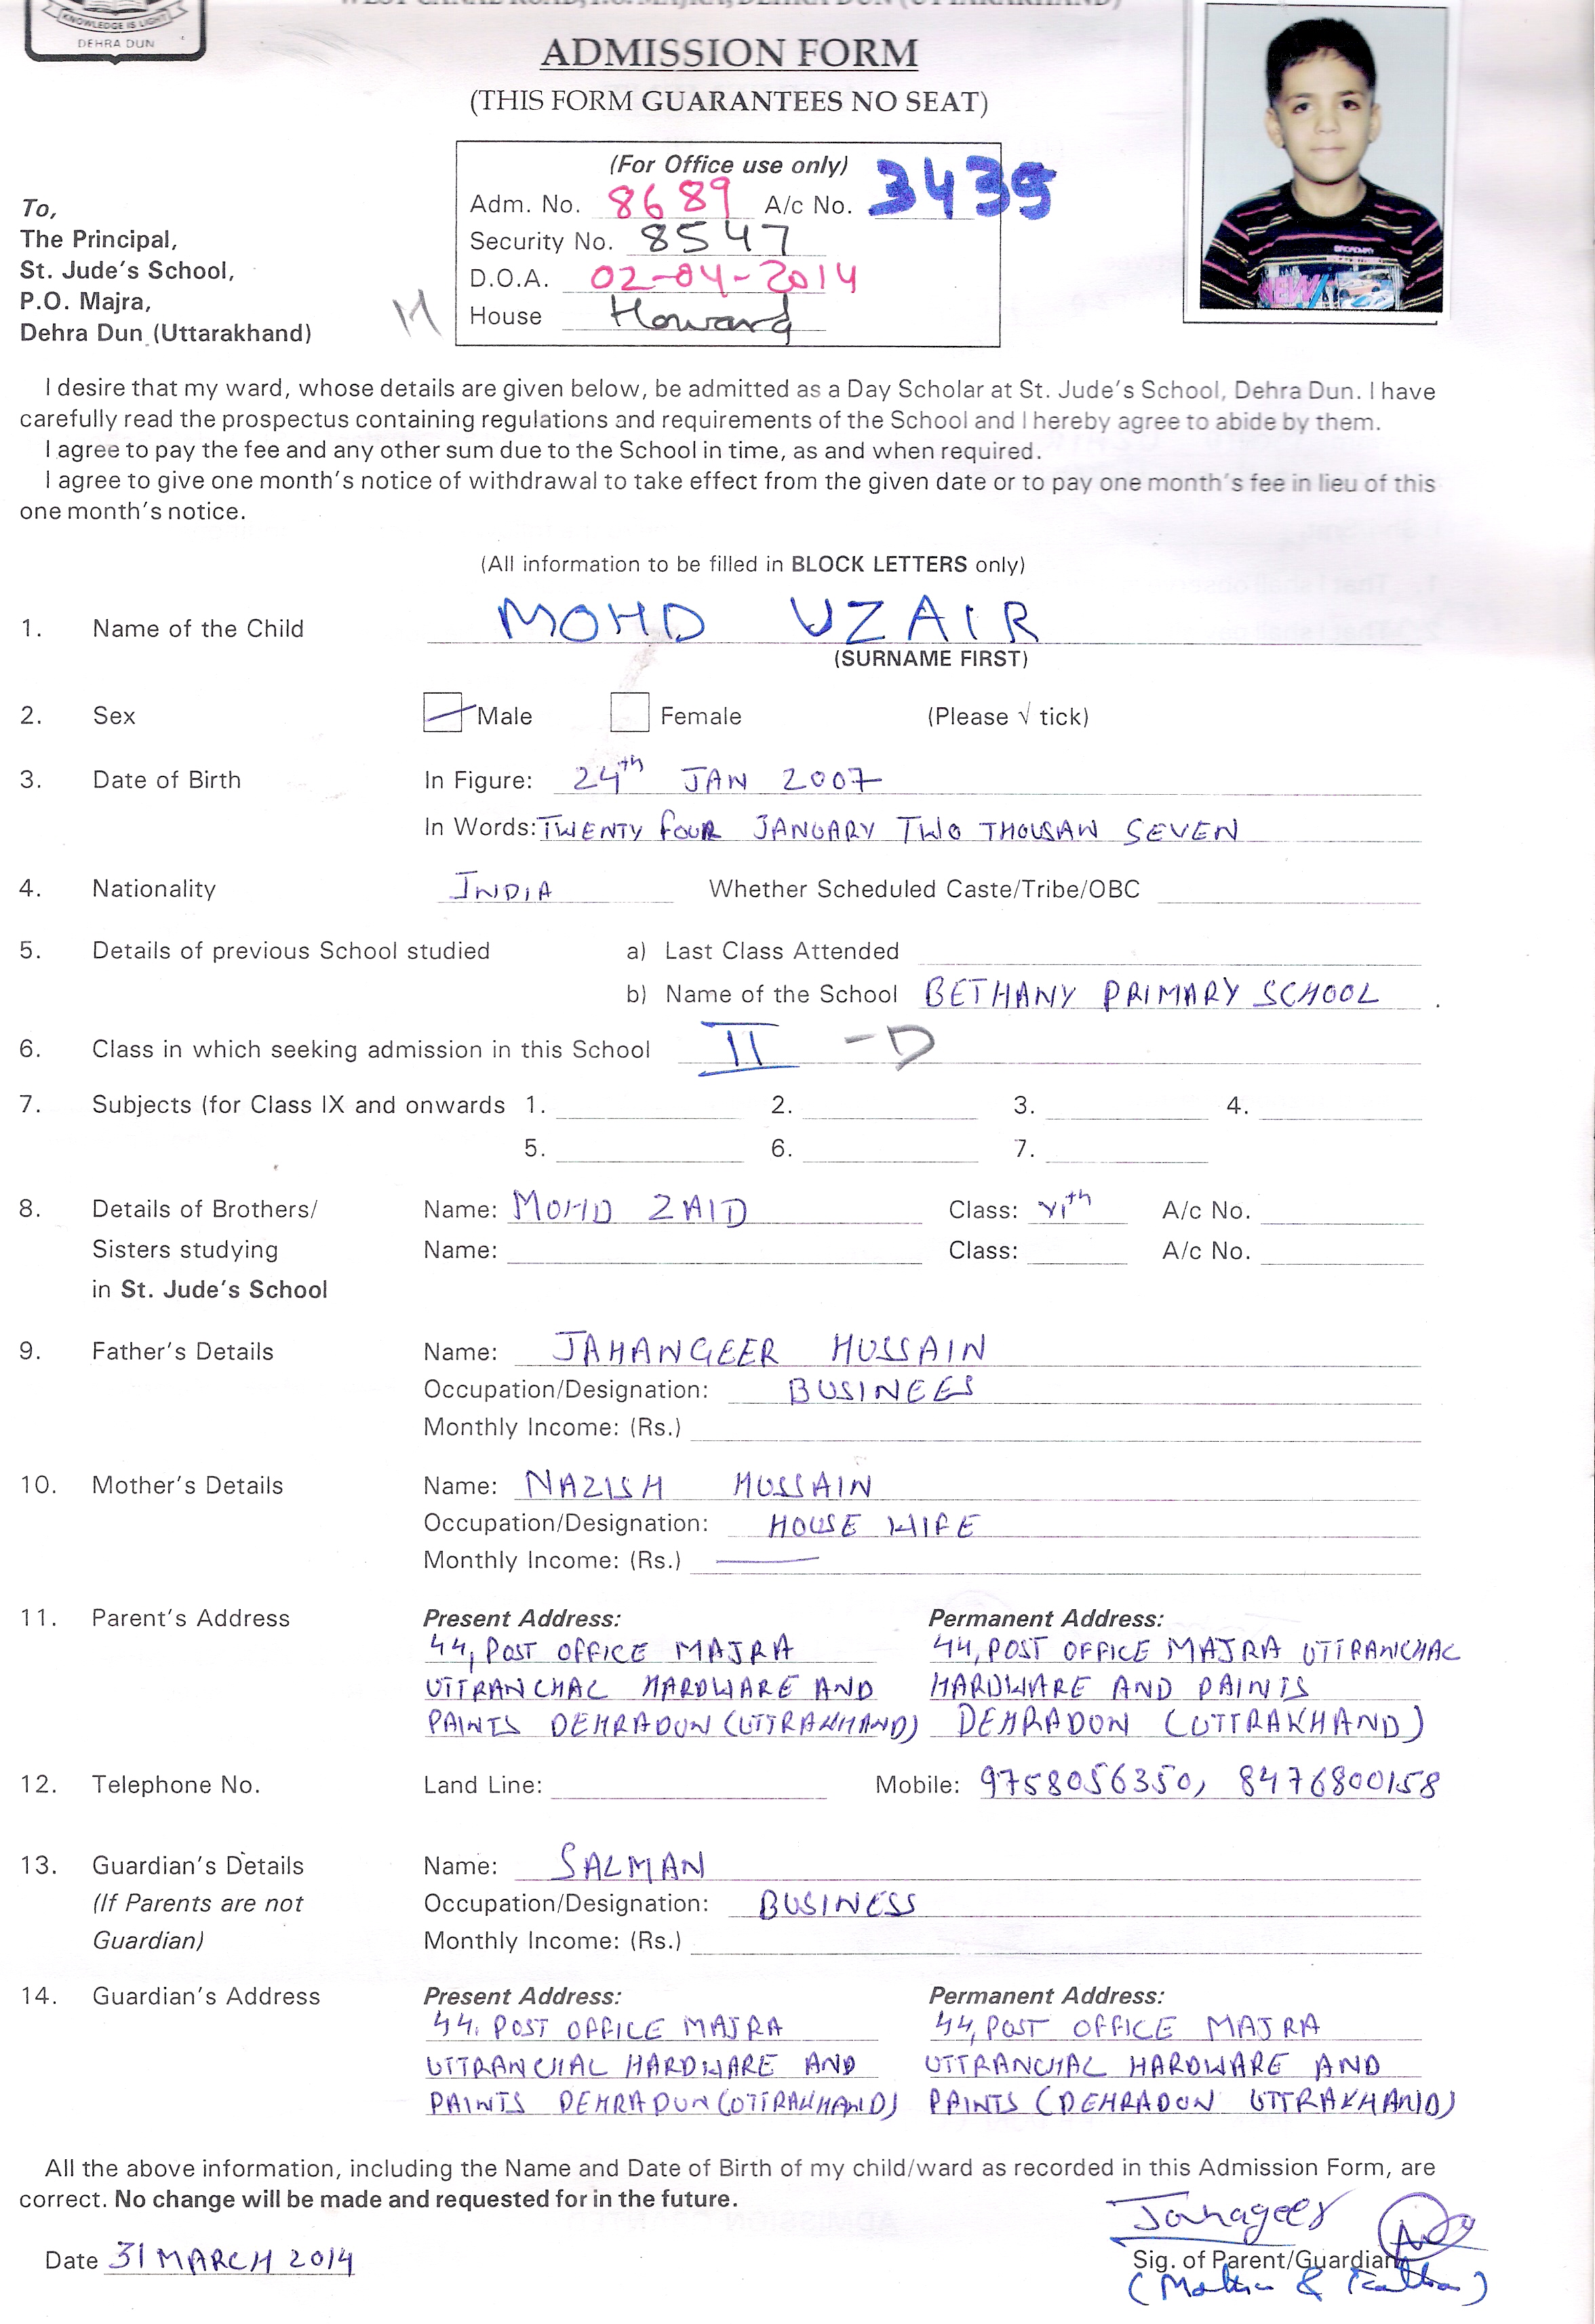 KNOWLEDGE IS LIGHT
DEHRA DUN
WEST CANAL ROAD, P.O. MAJRA, DEHRA DUN (UTTARAKHAND)
ADMISSION FORM
(THIS FORM GUARANTEES NO SEAT)
(For Office use only)
Adm. No. 8689 A/c No. 3435
Security No. 8547
D.O.A. 02-04-2014
House Howard
To,
The Principal,
St. Jude's School,
P.O. Majra,
Dehra Dun (Uttarakhand)
M
BROADWAY
NEW
I desire that my ward, whose details are given below, be admitted as a Day Scholar at St. Jude's School, Dehra Dun. I have
carefully read the prospectus containing regulations and requirements of the School and I hereby agree to abide by them.
I agree to pay the fee and any other sum due to the School in time, as and when required.
I agree to give one month's notice of withdrawal to take effect from the given date or to pay one month's fee in lieu of this
one month's notice.
(All information to be filled in BLOCK LETTERS only)
1. Name of the Child MOHD UZAIR
(SURNAME FIRST)
2. Sex Male Female (Please √ tick)
3. Date of Birth In Figure: 24th JAN 2007
In Words: TWENTY FOUR JANUARY TWO THOUSAN SEVEN
4. Nationality INDIA Whether Scheduled Caste/Tribe/OBC
5. Details of previous School studied a) Last Class Attended
b) Name of the School BETHANY PRIMARY SCHOOL
6. Class in which seeking admission in this School II - D
7. Subjects (for Class IX and onwards 1. 2. 3. 4.
5. 6. 7.
8. Details of Brothers/ Name: MOHD ZAID Class: VIth A/c No.
Sisters studying Name: Class: A/c No.
in St. Jude's School
9. Father's Details Name: JAHANGEER HUSSAIN
Occupation/Designation: BUSINEES
Monthly Income: (Rs.)
10. Mother's Details Name: NAZISH HUSSAIN
Occupation/Designation: HOUSE WIFE
Monthly Income: (Rs.) —
11. Parent's Address Present Address: Permanent Address:
44, POST OFFICE MAJRA 44, POST OFFICE MAJRA UTTRANCHAL
UTTRANCHAL HARDWARE AND HARDWARE AND PAINTS
PAINTS DEHRADUN (UTTRAKHAND) DEHRADUN (UTTRAKHAND)
12. Telephone No. Land Line: Mobile: 9758056350, 8476800158
13. Guardian's Details Name: SALMAN
(If Parents are not Occupation/Designation: BUSINESS
Guardian) Monthly Income: (Rs.)
14. Guardian's Address Present Address: Permanent Address:
44. POST OFFICE MAJRA 44, POST OFFICE MAJRA
UTTRANCHAL HARDWARE AND UTTRANCHAL HARDWARE AND
PAINTS DEHRADUN (UTTRAKHAND) PAINTS (DEHRADUN UTTRAKHAND)
All the above information, including the Name and Date of Birth of my child/ward as recorded in this Admission Form, are
correct. No change will be made and requested for in the future.
Jahageer
Date 31 MARCH 2014 Sig. of Parent/Guardian
(Mother & Father)